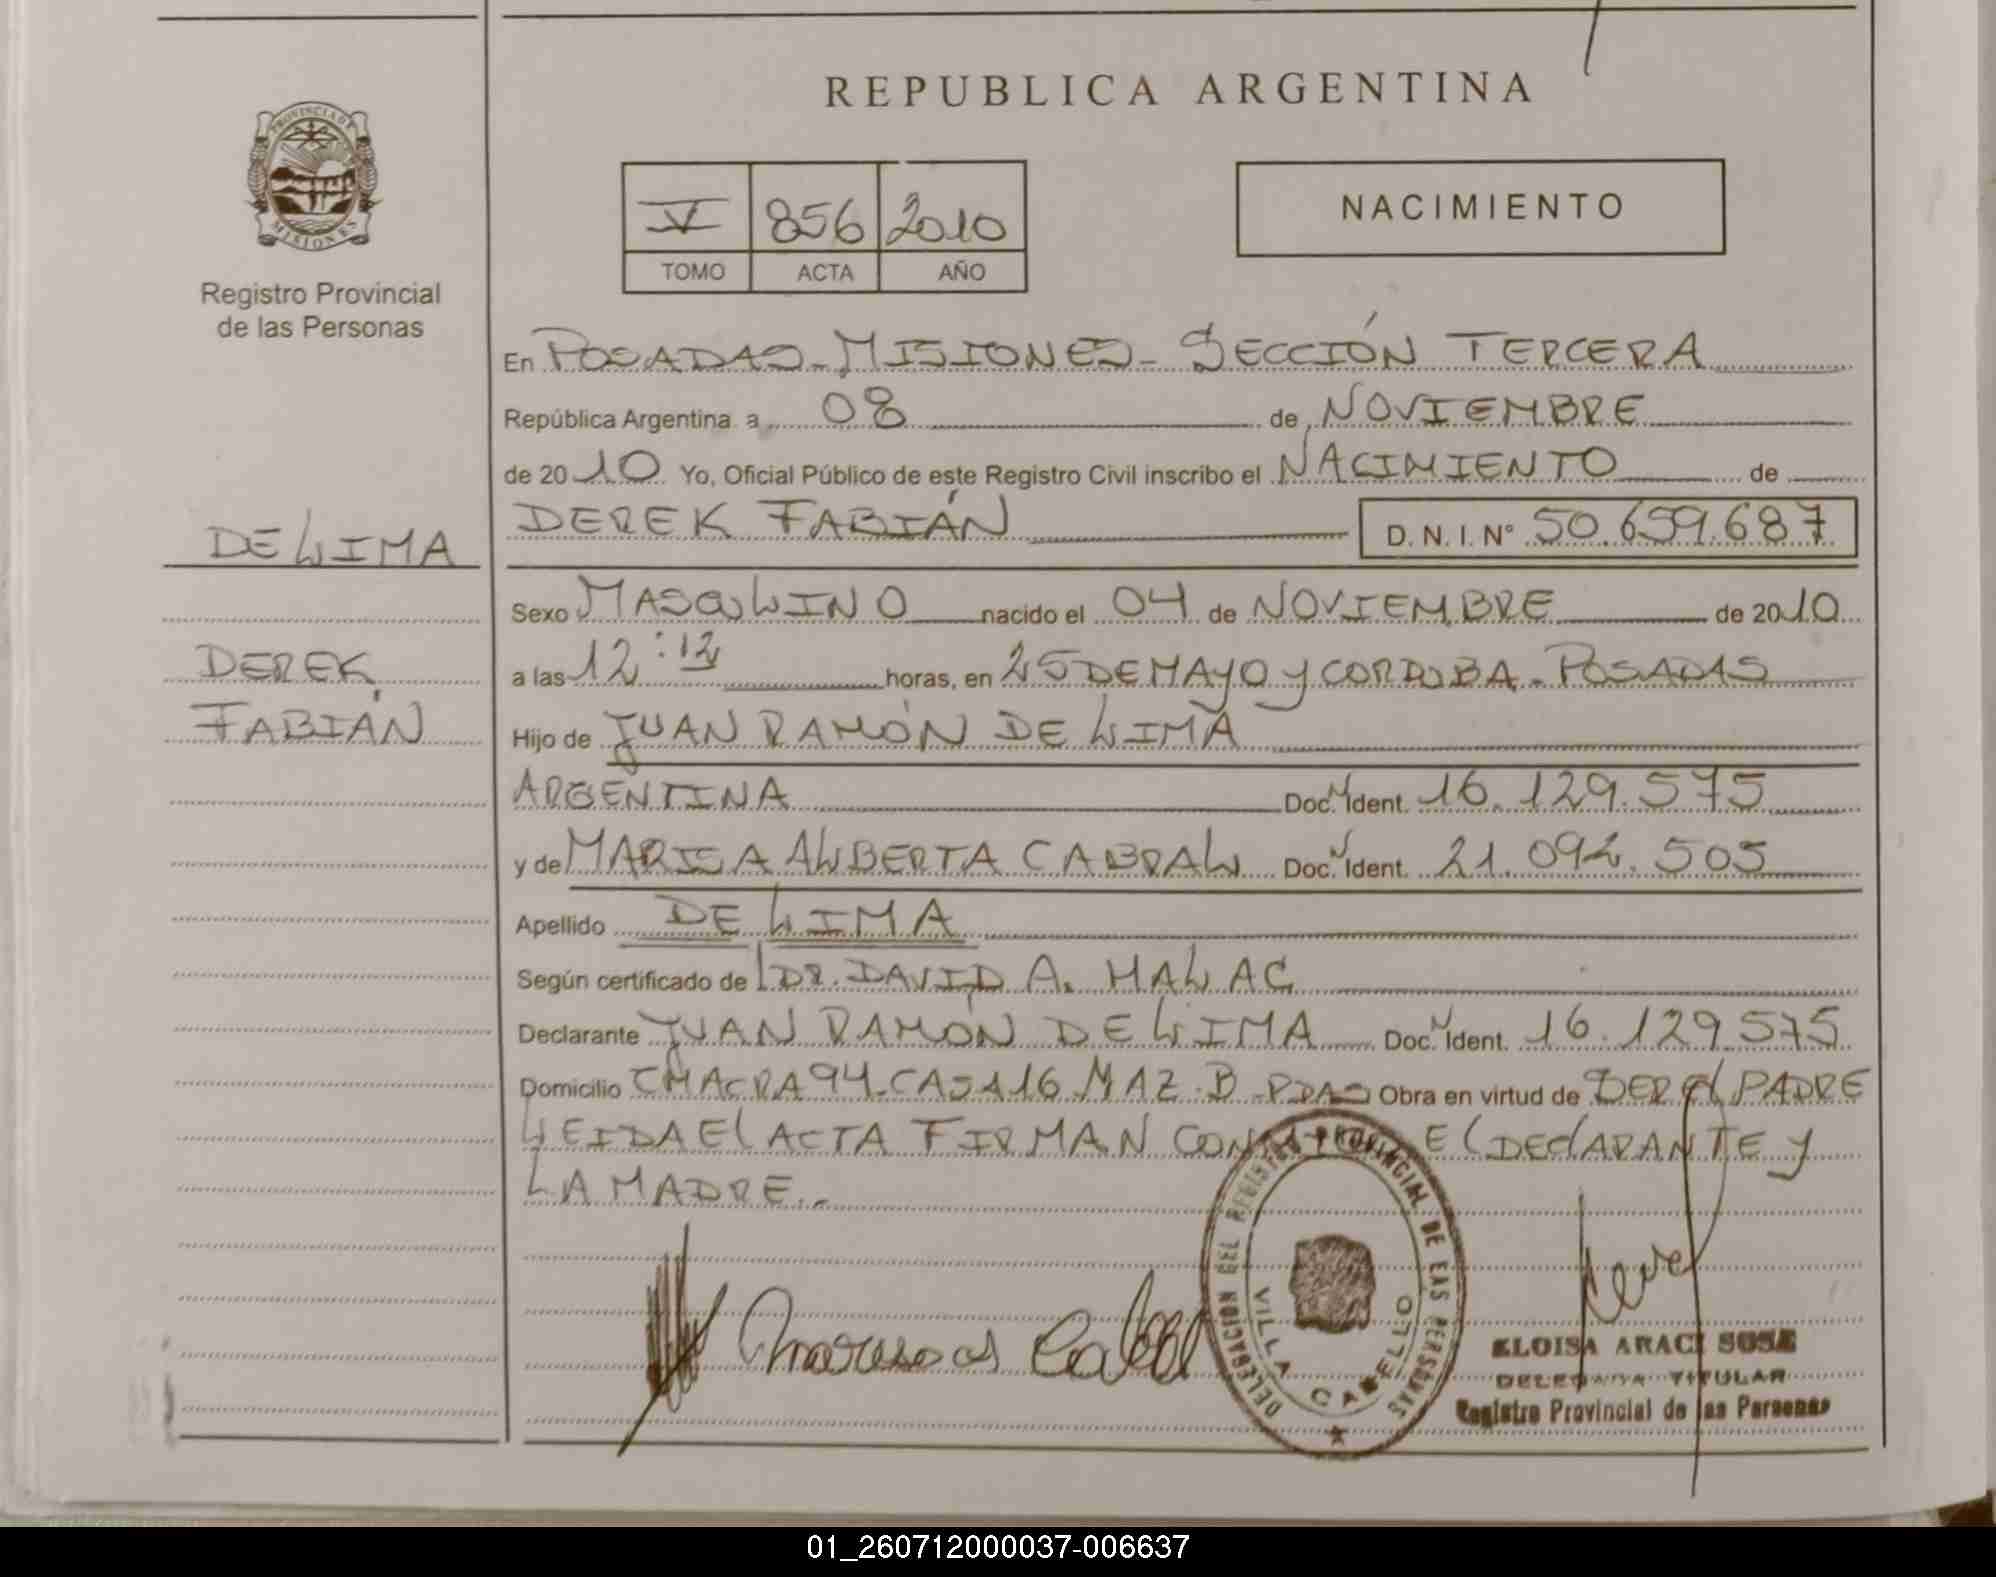 REPUBLICA ARGENTINA
PROVINCIA DE MISIONES
Registro Provincial
de las Personas
V 856 2010
TOMO ACTA AÑO
NACIMIENTO
En POSADAS-MISIONES- SECCIÓN TERCERA
República Argentina a 08 de NOVIEMBRE
de 2010 Yo, Oficial Público de este Registro Civil inscribo el NACIMIENTO de
DEREK FABIÁN D.N.I. N° 50.659.687
DE LIMA
DEREK
FABIÁN
Sexo MASCULINO nacido el 04 de NOVIEMBRE de 2010
a las 12:12 horas, en 25 DE MAYO y CORDOBA - POSADAS
Hijo de JUAN RAMÓN DE LIMA
ARGENTINA Doc. Ident. 16.129.575
y de MARISA ALBERTA CABRAL Doc. Ident. 21.092.505
Apellido DE LIMA
Según certificado de DR. DAVID A. MALAC
Declarante JUAN RAMÓN DE LIMA Doc. Ident. 16.129.575
Domicilio CHACRA 94-CASA 16 MAZ-B-PDAS Obra en virtud de SER El PADRE
LEIDA El ACTA FIRMAN El DEClARANTE y
LA MADRE.-
DELEGACION DEL REGISTRO PROVINCIAL DE LAS PERSONAS
VILLA CABELLO
ELOISA ARACI SOSE
DELEGADA TITULAR
Registro Provincial de las Personas
01_260712000037-006637